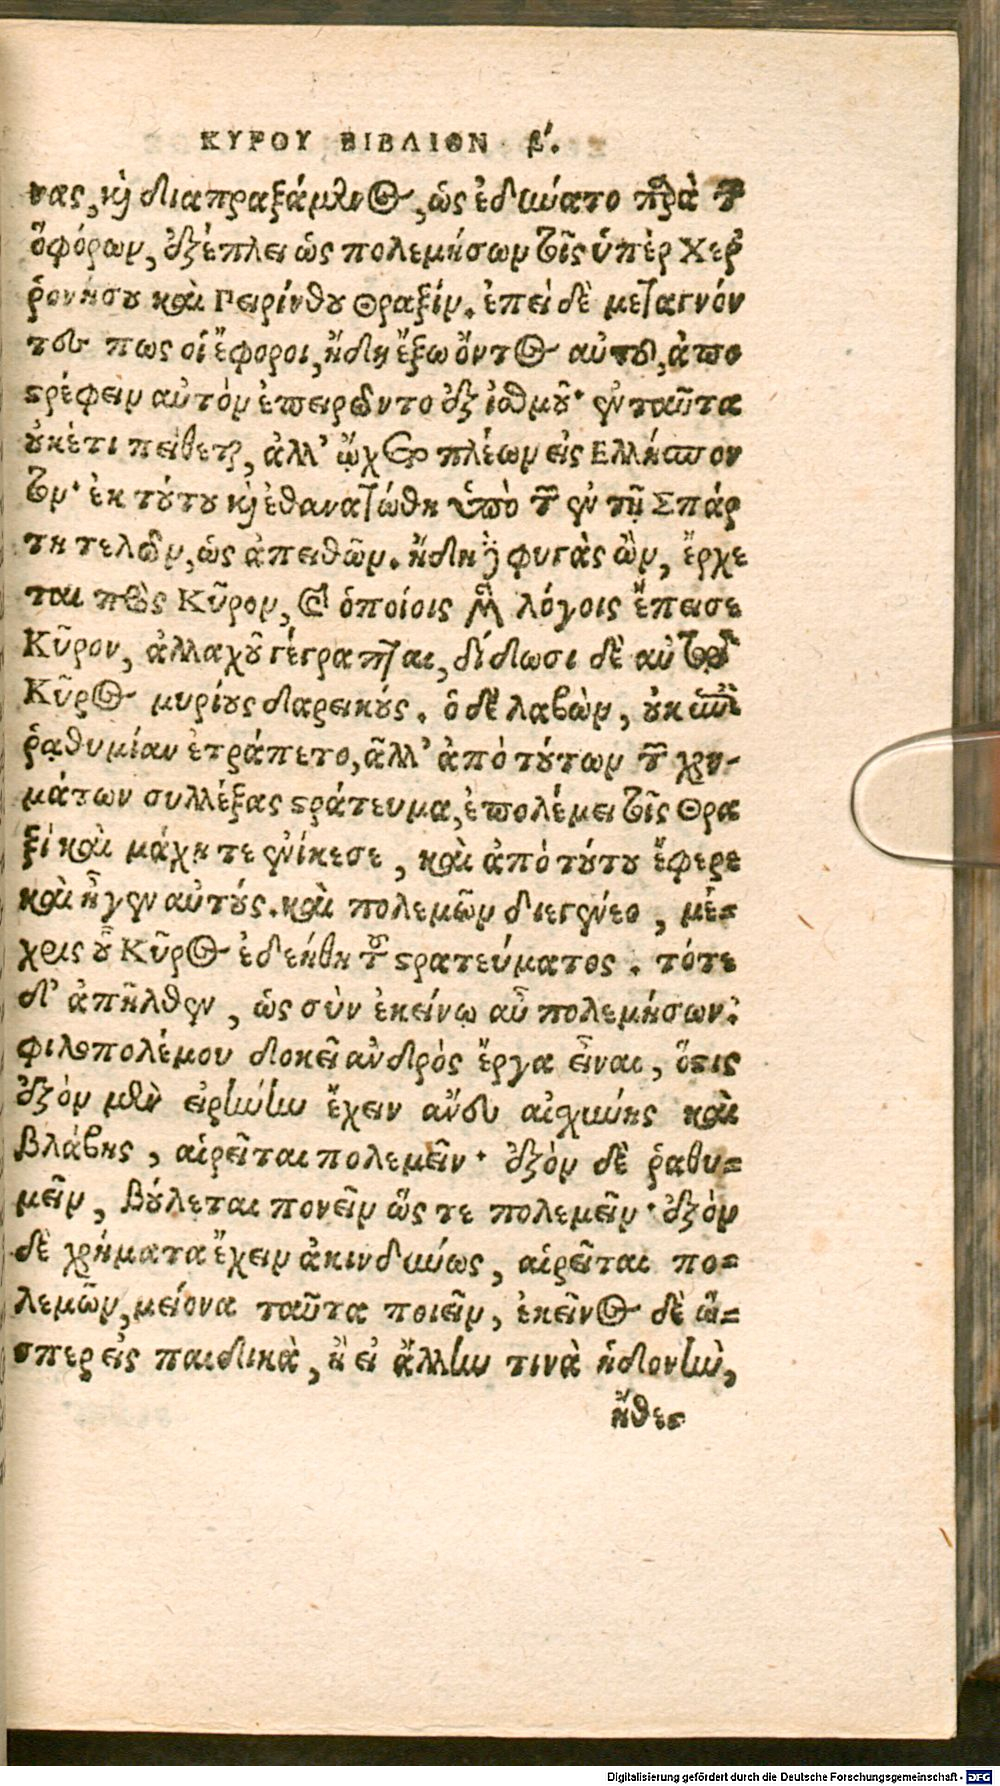 ΚΥΡΟΥ ΒΙΒΛΙΟΝ β´.
νας, καὶ διαπραξάμενος, ὡς ἐδύνατο παρὰ τῶν
ἐφόρων, ἐξέπλει ὡς πολεμήσων τοῖς ὑπὲρ Χερ
ῥονήσου καὶ Πειρίνθου Θραξίν. ἐπεὶ δὲ μεταγνόν
τες πως οἱ ἔφοροι, ἤδη ἔξω ὄντος αὐτοῦ, ἀπο
στρέφειν αὐτὸν ἐπειρῶντο ἐξ ἰσθμοῦ· ἐνταῦτα
οὐκέτι πείθεται, ἀλλ' ᾤχετο πλέων εἰς Ελλήσπον
τον· ἐκ τούτου καὶ ἐθανατώθη ὑπὸ τῶν ἐν τῇ Σπάρ
τη τελῶν, ὡς ἀπειθῶν. ἤδη δὲ φυγὰς ὢν, ἔρχε
ται πρὸς Κῦρον, καὶ ὁποίοις μὲν λόγοις ἔπεισε
Κῦρον, ἀλλαχοῦ γέγραπται, δίδωσι δὲ αὐτῷ
Κῦρος μυρίους δαρεικούς. ὁ δὲ λαβὼν, οὐκ ἐπὶ
ῥᾳθυμίαν ἐτράπετο, ἀλλ' ἀπὸ τούτων τῶν χρη-
μάτων συλλέξας στράτευμα, ἐπολέμει τοῖς Θρα
ξὶ καὶ μάχη τε ἐνίκεσε, καὶ ἀπὸ τούτου ἔφερε
καὶ ἦγεν αὐτούς. καὶ πολεμῶν διεγένεο, μέ-
χρις οὗ Κῦρος ἐδεήθη τοῦ στρατεύματος. τότε
δ' ἀπῆλθεν, ὡς σὺν ἐκείνῳ αὖ πολεμήσων.
φιλοπολέμου δοκεῖ ἀνδρὸς ἔργα εἶναι, ὅστις
ἐξὸν μὲν εἰρήνην ἔχειν ἄνευ αἰσχύνης καὶ
βλάβης, αἱρεῖται πολεμεῖν· ἐξὸν δὲ ῥαθυ-
μεῖν, βούλεται πονεῖν ὥς τε πολεμεῖν· ἐξὸν
δὲ χρήματα ἔχειν ἀκινδύνως, αἱρεῖται πο-
λεμῶν, μείονα ταῦτα ποιεῖν, ἐκεῖνος δὲ ὥ-
σπερ εἰς παιδικὰ, ἢ εἰ ἄλλην τινὰ ἡδονὴν,
ἤθες
Digitalisierung gefördert durch die Deutsche Forschungsgemeinschaft - DFG